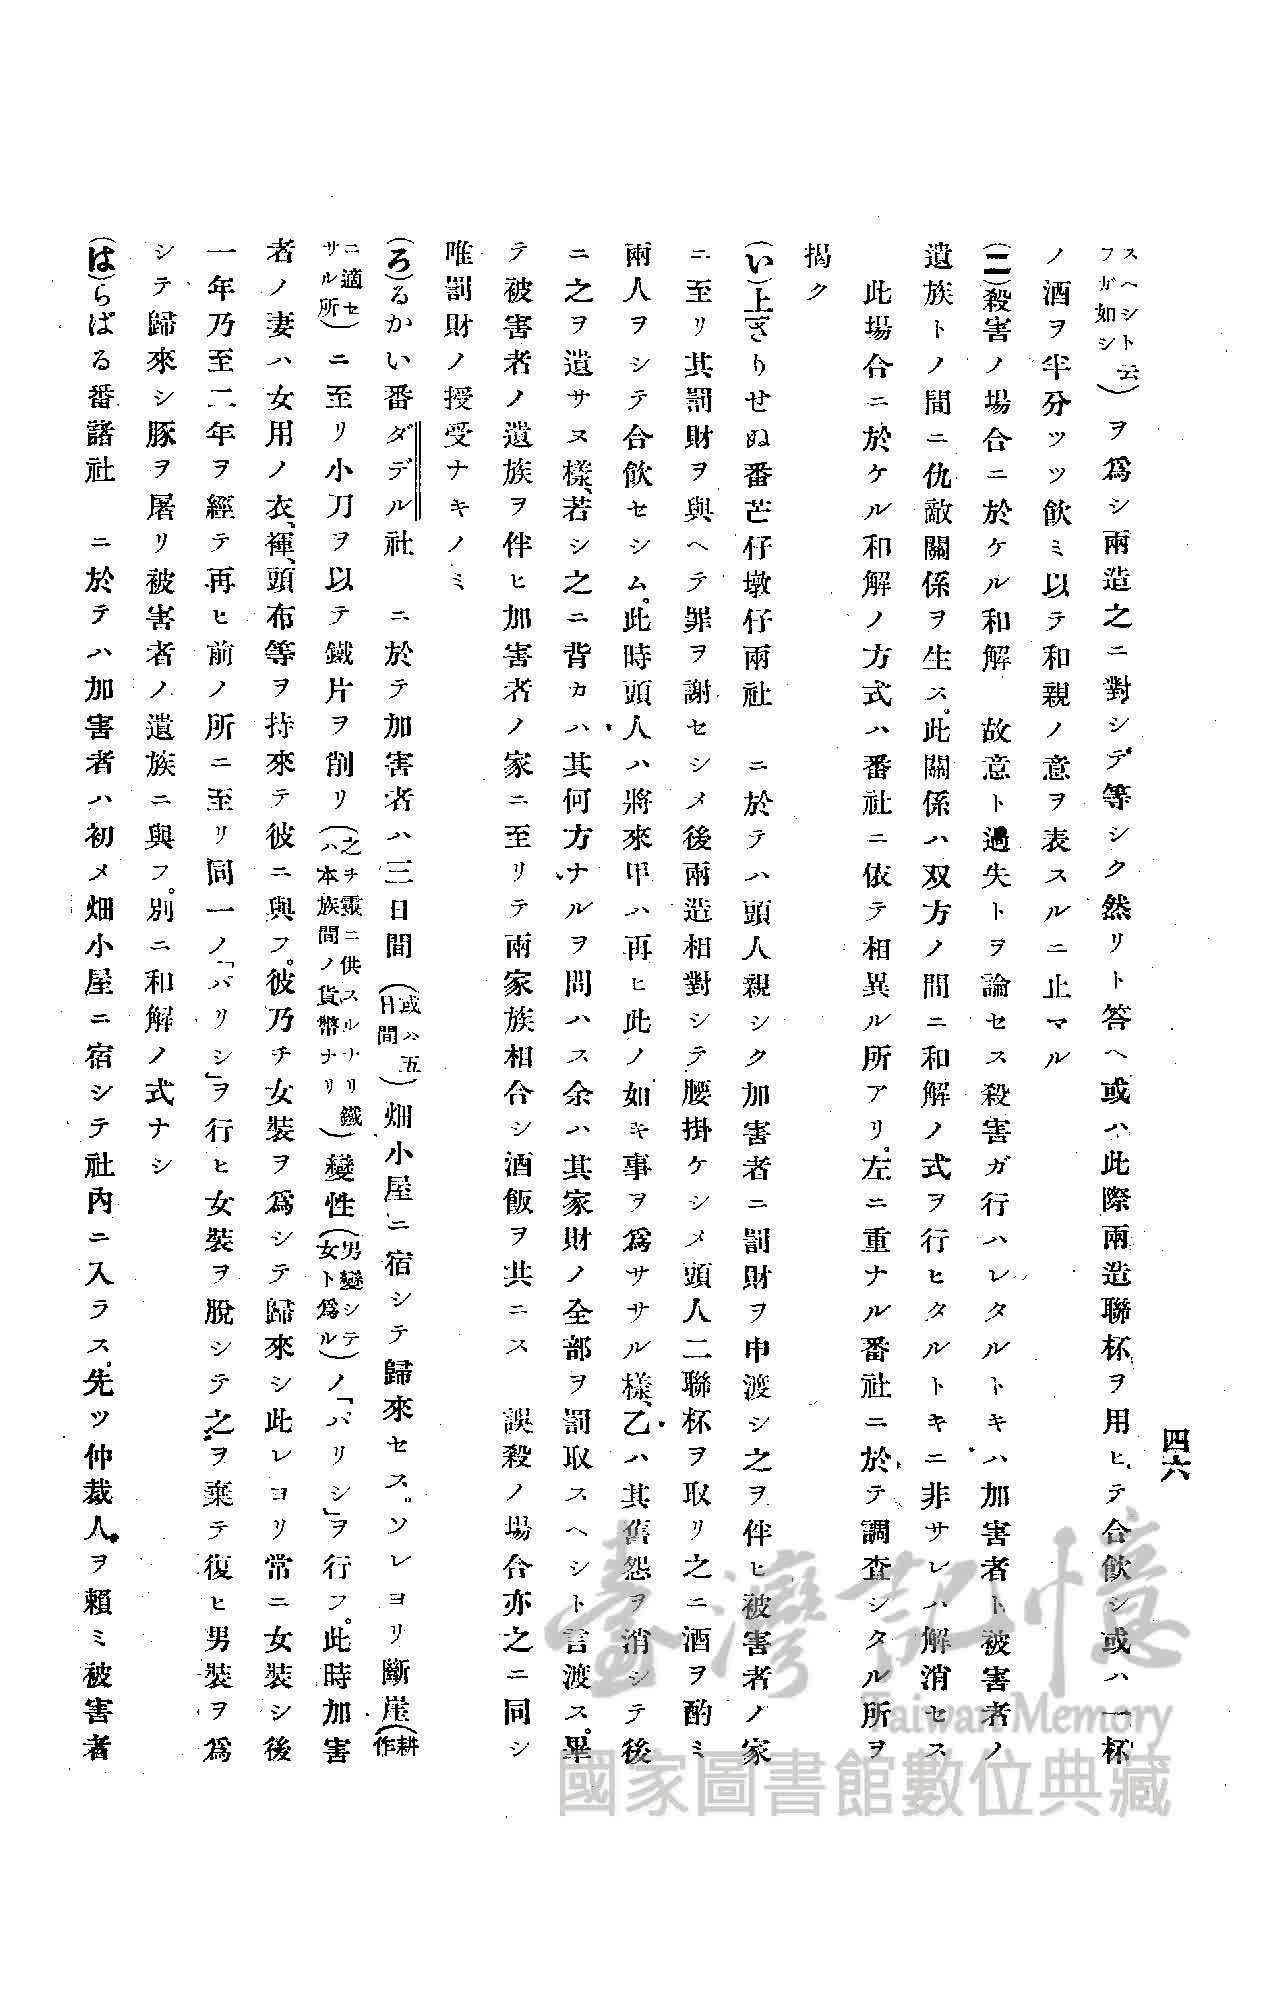 四六
スヘシト云フガ如シ)ヲ爲シ兩造之ニ對シテ等シク然リト答ヘ或ハ此際兩造聯杯ヲ用ヒテ合飮シ或ハ一杯
ノ酒ヲ半分ツツ飮ミ以テ和親ノ意ヲ表スルニ止マル
(二)殺害ノ場合ニ於ケル和解 故意ト過失トヲ論セス殺害ガ行ハレタルトキハ加害者ト被害者ノ
遺族トノ間ニ仇敵關係ヲ生ス。此關係ハ双方ノ間ニ和解ノ式ヲ行ヒタルトキニ非サレハ解消セス
此場合ニ於ケル和解ノ方式ハ番社ニ依テ相異ル所アリ。左ニ重ナル番社ニ於テ調査シタル所ヲ
揭ク
(い)上きりせぬ番芒仔墩仔兩社 ニ於テハ頭人親シク加害者ニ罰財ヲ申渡シ之ヲ伴ヒ被害者ノ家
ニ至リ其罰財ヲ與ヘテ罪ヲ謝セシメ後兩造相對シテ腰掛ケシメ頭人二聯杯ヲ取リ之ニ酒ヲ酌ミ
兩人ヲシテ合飮セシム。此時頭人ハ將來甲ハ再ヒ此ノ如キ事ヲ爲ササル樣、乙ハ其舊怨ヲ消シテ後
ニ之ヲ遺サス樣、若シ之ニ背カハ其何方ナルヲ問ハス余ハ其家財ノ全部ヲ罰取スヘシト言渡ス。畢
テ被害者ノ遺族ヲ伴ヒ加害者ノ家ニ至リテ兩家族相合シ酒飯ヲ共ニス 誤殺ノ場合亦之ニ同シ
唯罰財ノ授受ナキノミ
(ろ)るかい番ダデル社 ニ於テ加害者ハ三日間(或ハ五日間)畑小屋ニ宿シテ歸來セス。ソレヨリ斷崖(耕作
ニ適セサル所)ニ至リ小刀ヲ以テ鐵片ヲ削リ(之ヲ靈ニ供スルナリ鐵ハ本族間ノ貨幣ナリ)變性(男變シテ女ト爲ル)ノ「パリシ」ヲ行フ。此時加害
者ノ妻ハ女用ノ衣、褌、頭布等ヲ持來テ彼ニ與フ。彼乃チ女裝ヲ爲シテ歸來シ此レヨリ常ニ女裝シ後
一年乃至二年ヲ經テ再ヒ前ノ所ニ至リ同一ノ「パリシ」ヲ行ヒ女裝ヲ脫シテ之ヲ棄テ復ヒ男裝ヲ爲
シテ歸來シ豚ヲ屠リ被害者ノ遺族ニ與フ。別ニ和解ノ式ナシ
(は)らばる番諸社 ニ於テハ加害者ハ初メ畑小屋ニ宿シテ社內ニ入ラス。先ツ仲裁人ヲ賴ミ被害者
臺灣記憶
Taiwan Memory
國家圖書館數位典藏